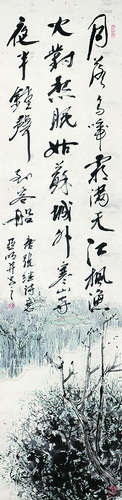 月落乌啼霜满天江枫渔
火对愁眠姑苏城外寒山寺
夜半钟声到客船
唐张继诗意
亚明并书之